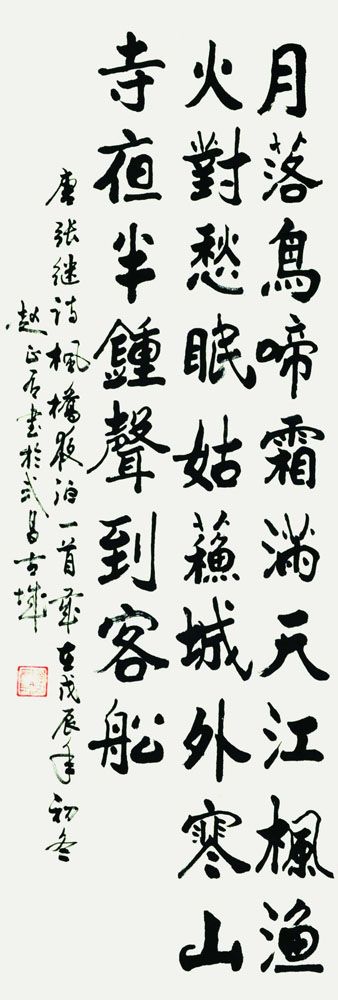 月落烏啼霜滿天江楓漁
火對愁眠姑蘓城外寒山
寺夜半鐘聲到客船
唐張继诗楓橋夜泊一首歲在戊辰年初冬
赵正居書於武昌古城